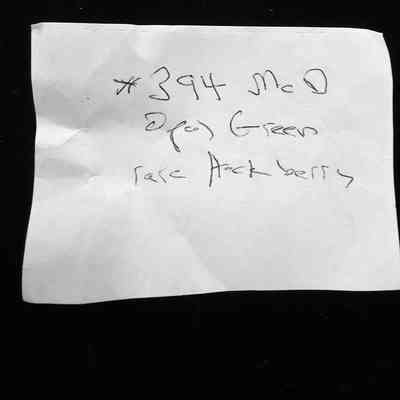 #394 McD
Opal Green
rare Hackberry